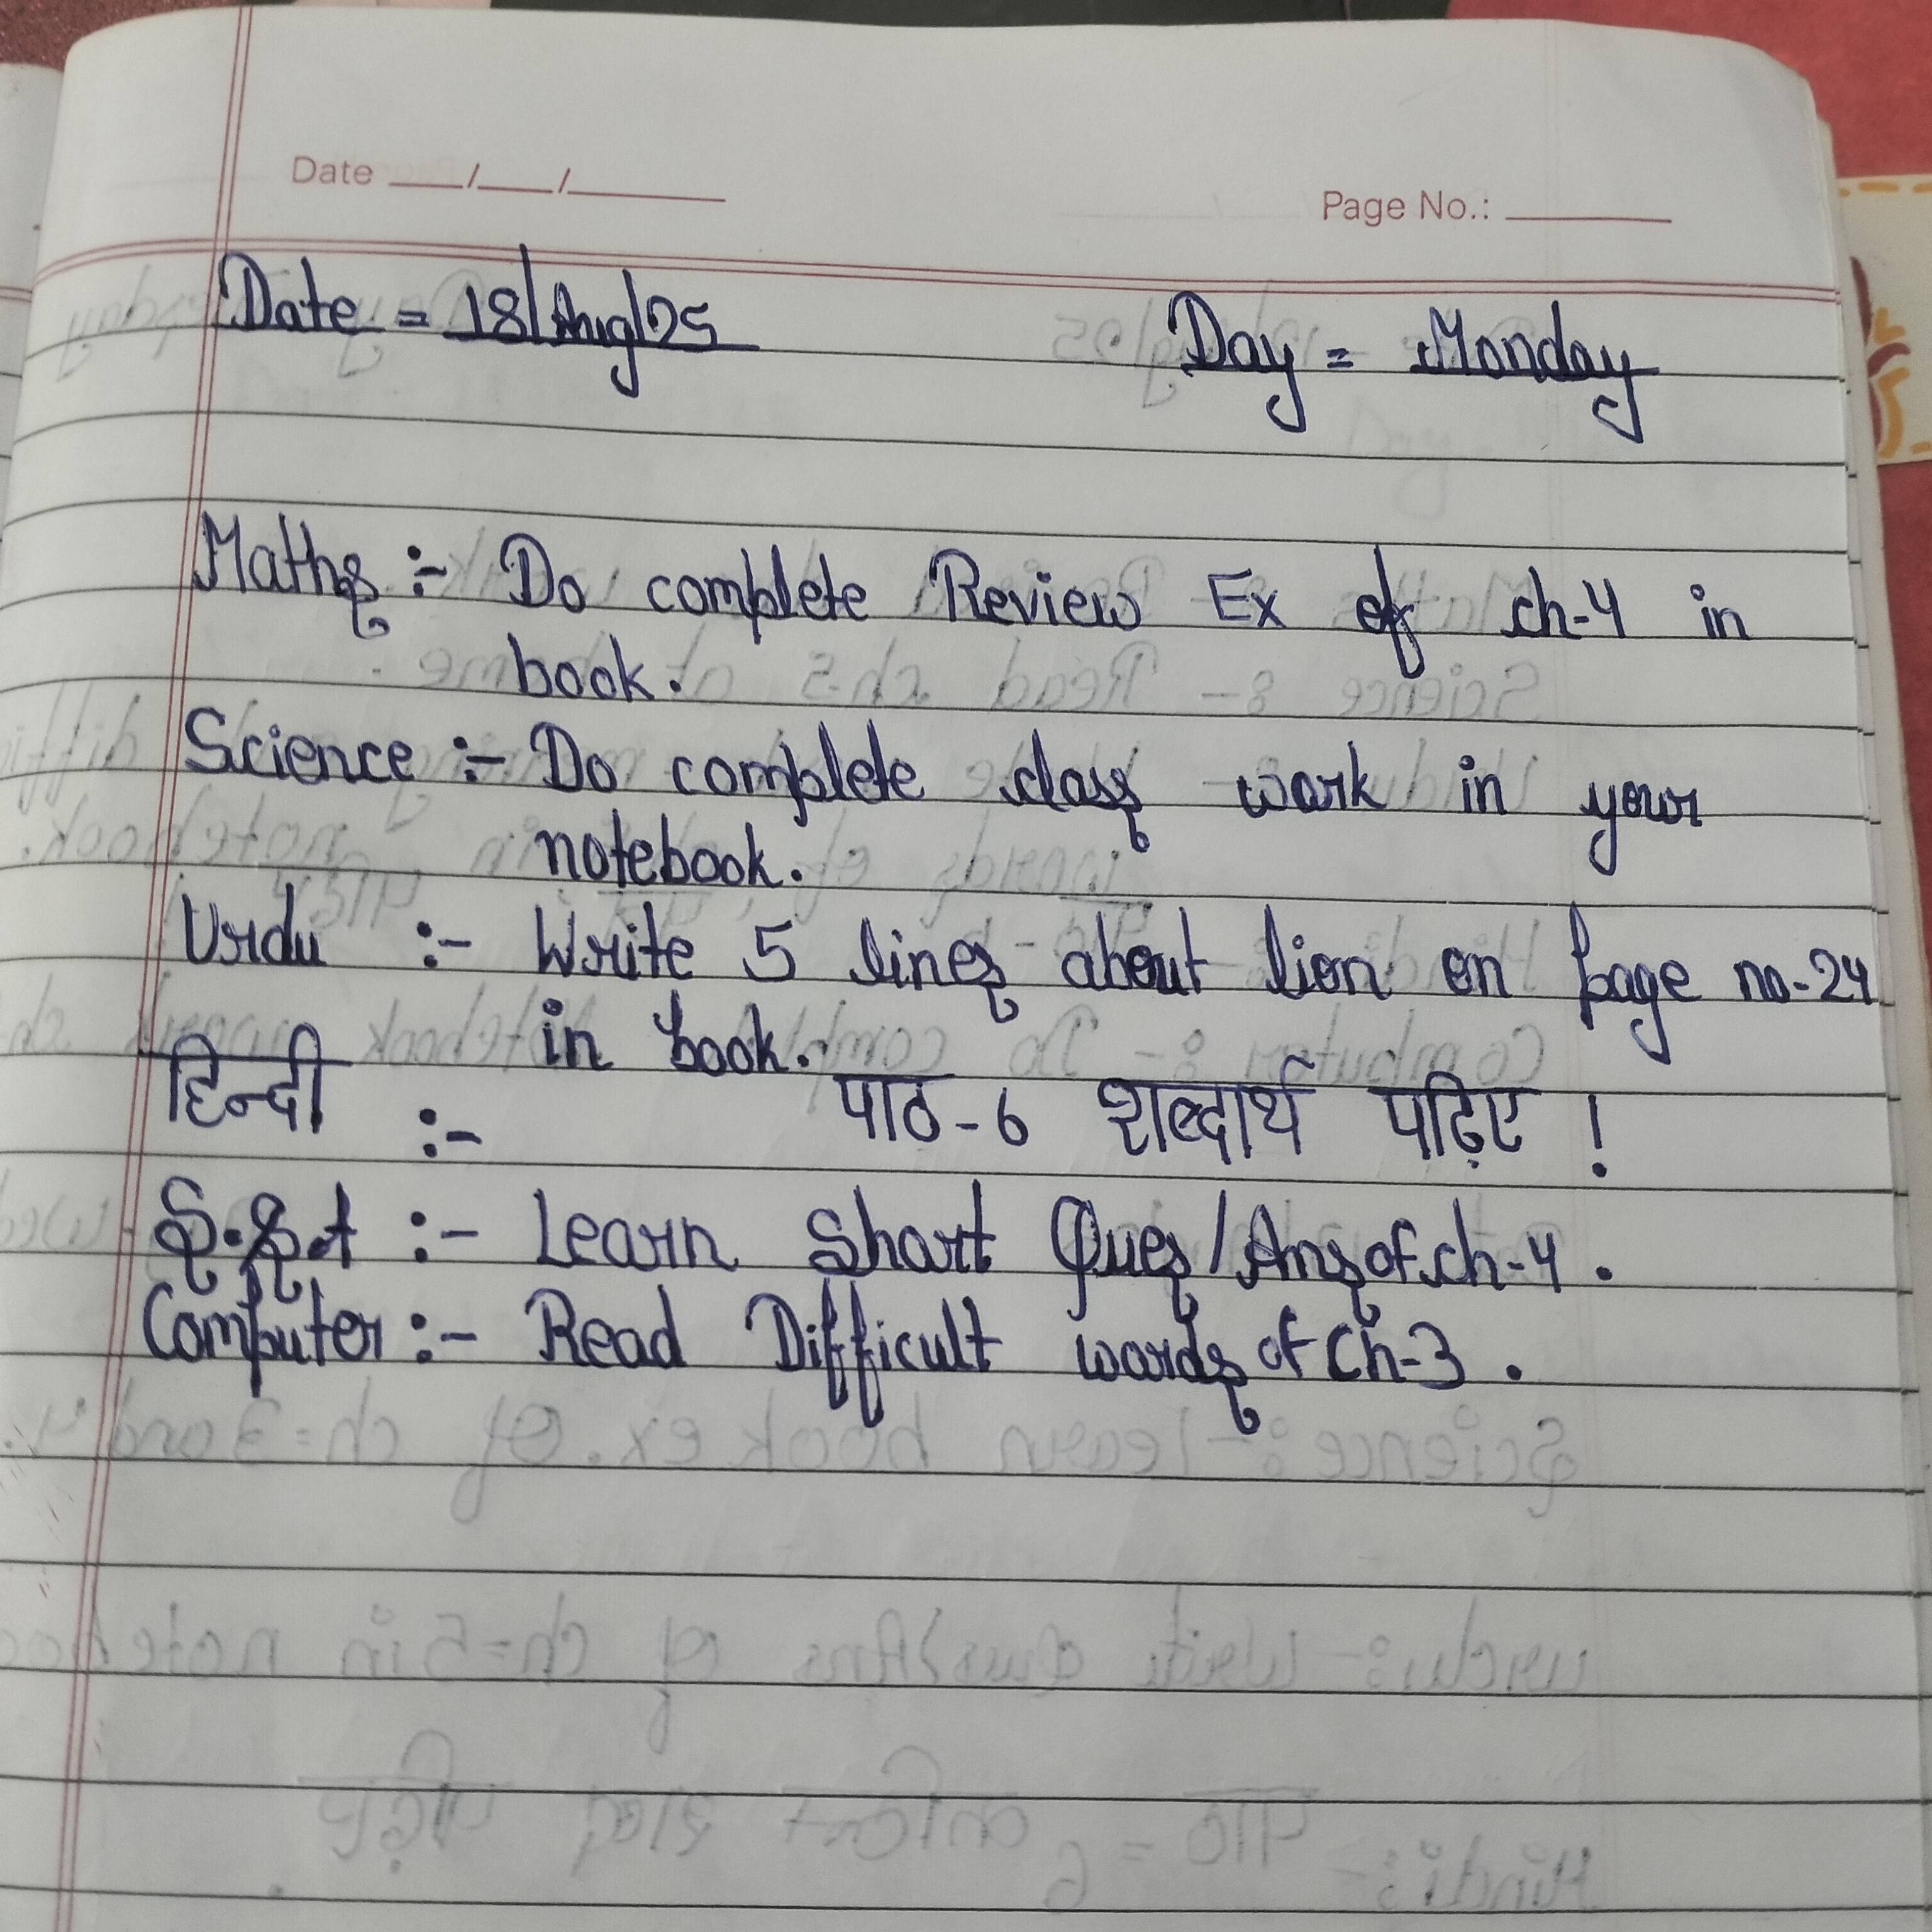 Date ___/___/______
Page No.: ______
Date = 18/Aug/25 Day = Monday
Maths :- Do complete Review Ex of ch-4 in
book.
Science :- Do complete class work in your
notebook.
Urdu :- Write 5 lines about lion on page no-24
in book.
हिन्दी :- पाठ-6 शब्दार्थ पढ़िए !
S.S.t :- Learn Short Ques/Ans of ch-4 .
Computer :- Read Difficult words of Ch-3 .